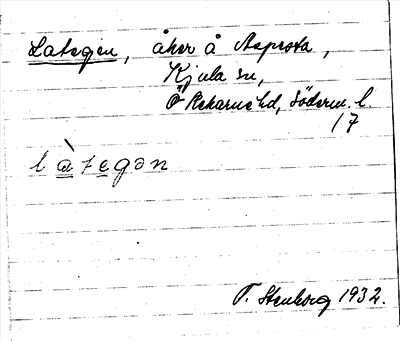 Lategen, åker å Aspesta,
Kjula sn,
Ö Rekarne hd, Söderm. l.
17
l à t e g ə n
T. Stenborg 1932.